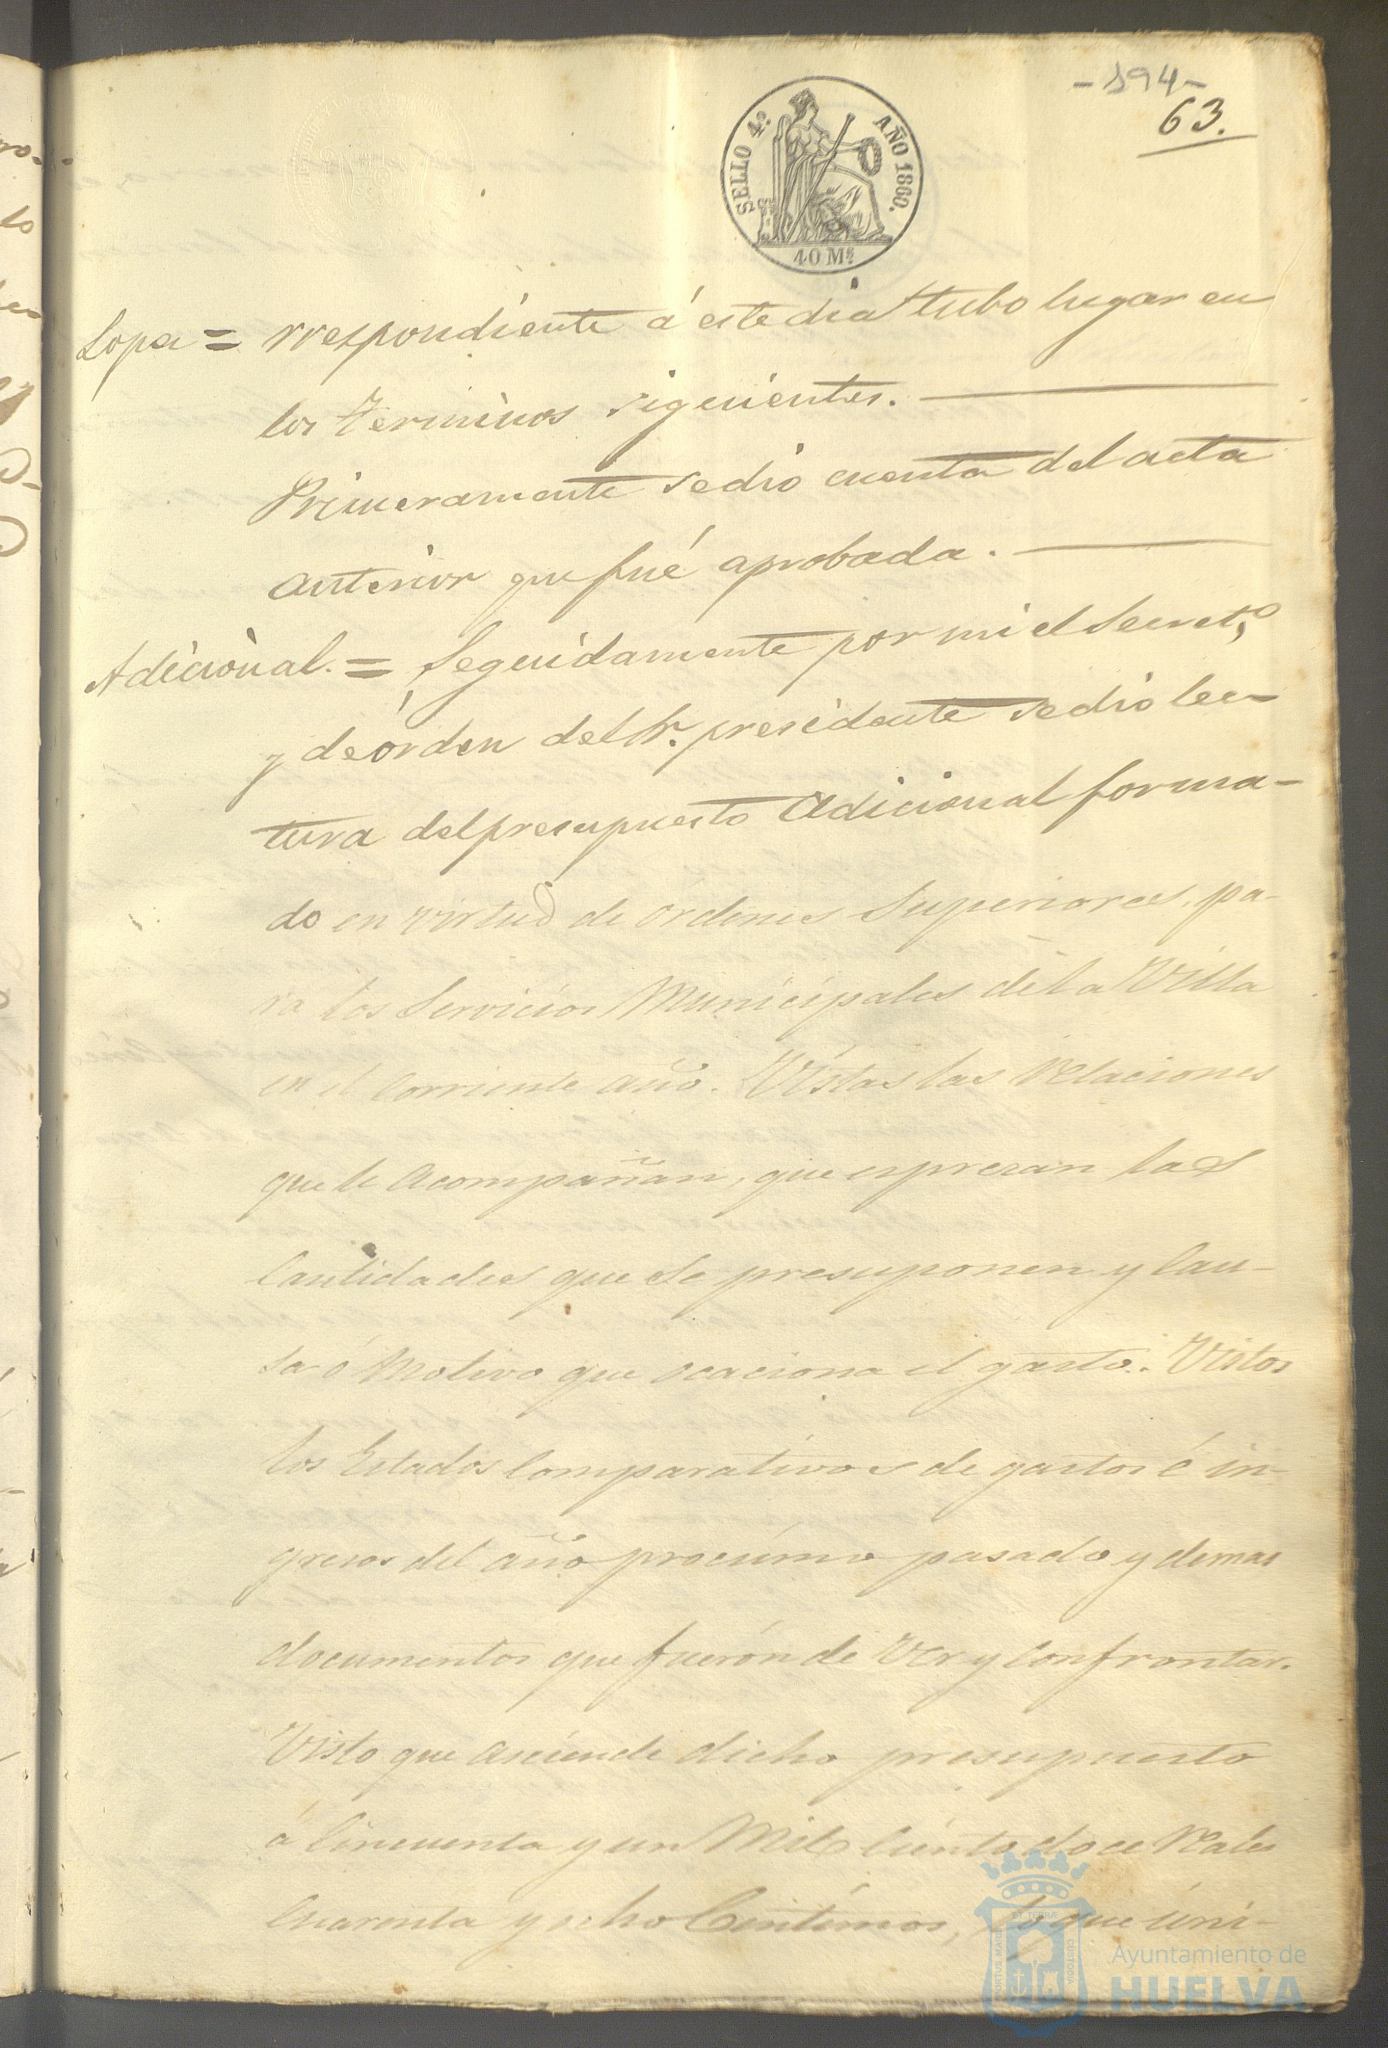 -194-
63.
SELLO 4º. AÑO 1860.
40 Mˢ
rrespondiente á este dia tubo lugar en
los terminos siguientes.
Primeramente se dió cuenta del acta
anterior que fué aprobada.
Adicional. = Seguidamente por mi el Secretº
y de órden del Sr. presidente se dió lec-
tura del presupuesto Adicional forma-
do en virtud de órdenes Superiores, pa-
ra los Servicios Municipales de la Villa
en el Corriente año. Vistas las relaciones
que le acompañan, que espresan las
Cantidades que se presuponen y Cau-
sa ó Motivo que ocaciona el gasto. Vistos
los Estados Comparativos de gastos é in-
gresos del año procsimo pasado y demas
documentos que fuerón de Ver y Confrontar.
Visto que asciende dicho presupuesto
á Cincuenta y un Mil Ciento doce Reales
Cuarenta y ocho Centimos, lo que úni-
PORTUS MARIS ET TERRÆ CUSTODIA
Ayuntamiento de
HUELVA